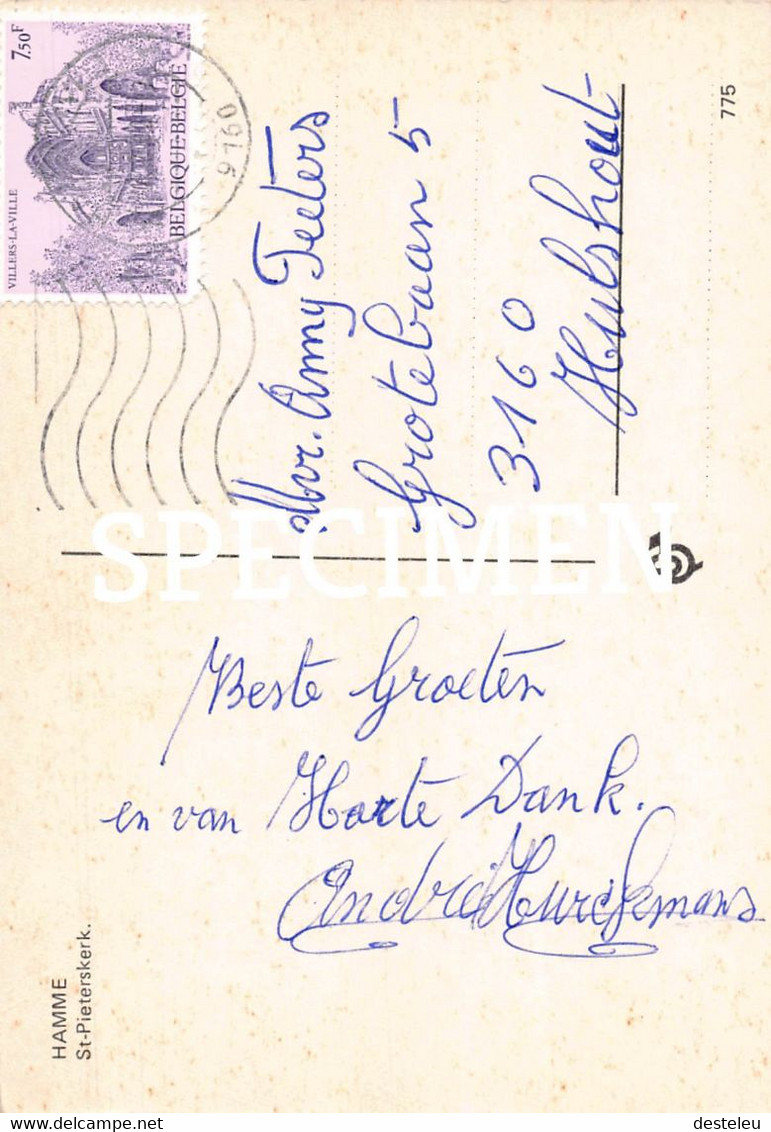 HAMME
St-Pieterskerk.
Beste Groeten
en van Harte Dank.
André
7.50F
VILLERS-LA-VILLE
BELGIQUE-BELGIE
9160
Mvr. Anny Peeters
Grotebaan 5
3160
Hulshout
775
SPECIMEN
delcampe.net
desteleu